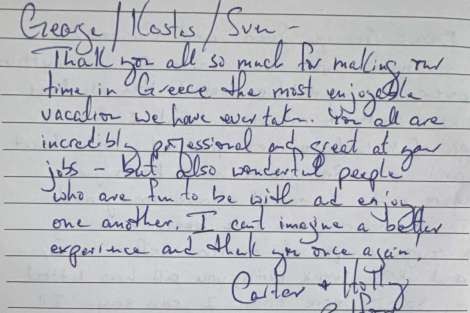 George / Kostas / Sven -
Thank you all so much for making our
time in Greece the most enjoyable
vacation we have ever taken. You all are
incredibly professional and great at your
jobs - but also wonderful people
who are fun to be with and enjoy
one another. I can't imagine a better
experience and thank you once again.
Carter + Holly